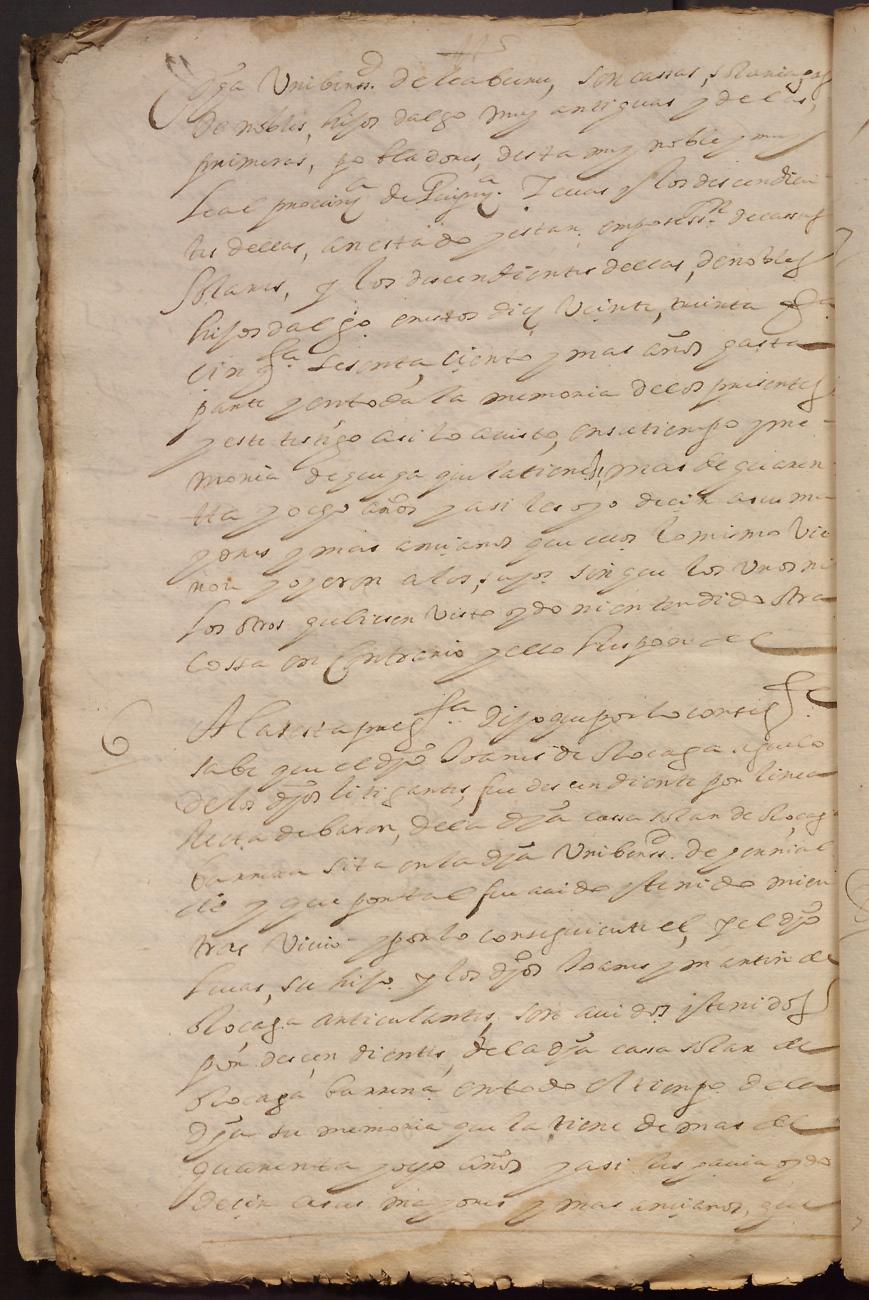 dha Unibersd. de leaburu, son cassas, solariegas
de nobles, hijos dalgo muy antiguas y de las,
primeras, pobladores, desta muy noble y muy
Leal provinça de Guipuza. Y ellas y los descendien
tes dellas, an estado y estan, em posesson. de cassas
Solares, y los descendientes dellas, de nobles
hijosdalgo en estos diez Veinte, treinta qta
cinqta sesenta, ciento y mas años a esta
parte y en toda la memoria de los presentes
y este testigo asi lo a visto, en su tiempo y me
moria de que ga que la tiene, mas de quaren
ta y ocho años y asi les oyo decir a sus ma
yores y mas ancianos que ellos lo mismo vie
ron y oyeron a los, suyos sin que los Unos ni
los otros ubiesen Visto oydo ni entendido otra
cossa en Contrario y ello Responde
6 A la sesta pregta dijo que por lo consigte
sabe que el dho Joanes de Olocaga aguelo
de los dhos litigantes, fue descendiente por linea
Recta de baron, de la dha cassa solar de Olocaga
barrena sita en la dha Unibersd. de
y que por tal fue auido y tenido mien
tras Viuio y por lo consiguiente el, y el dho
Lucas, su hijo y los dhos Joanes y martin de
Olocaga articulantes, son auidos y tenidos
por descendientes, de la dha cassa solar de
Olocaga barrena en todo el tiempo de la
dha su memoria que la tiene de mas de
quarenta y ocho años y asi les hauia oydo
decir a sus mayores y mas ancianos, que